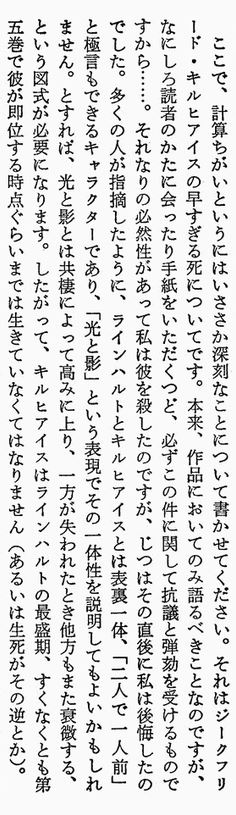 ここで、計算ちがいというにはいささか深刻なことについて書かせてください。それはジークフリ
ード・キルヒアイスの早すぎる死についてです。本来、作品においてのみ語るべきことなのですが、
なにしろ読者のかたに会ったり手紙をいただくつど、必ずこの件に関して抗議と弾劾を受けるもので
すから……。それなりの必然性があって私は彼を殺したのですが、じつはその直後に私は後悔したの
でした。多くの人が指摘したように、ラインハルトとキルヒアイスとは表裏一体、「二人で一人前」
と極言もできるキャラクターであり、「光と影」という表現でその一体性を説明してもよいかもしれ
ません。とすれば、光と影とは共棲によって高みに上り、一方が失われたとき他方もまた衰微する、
という図式が必要になります。したがって、キルヒアイスはラインハルトの最盛期、すくなくとも第
五巻で彼が即位する時点ぐらいまでは生きていなくてはなりません（あるいは生死がその逆とか）。